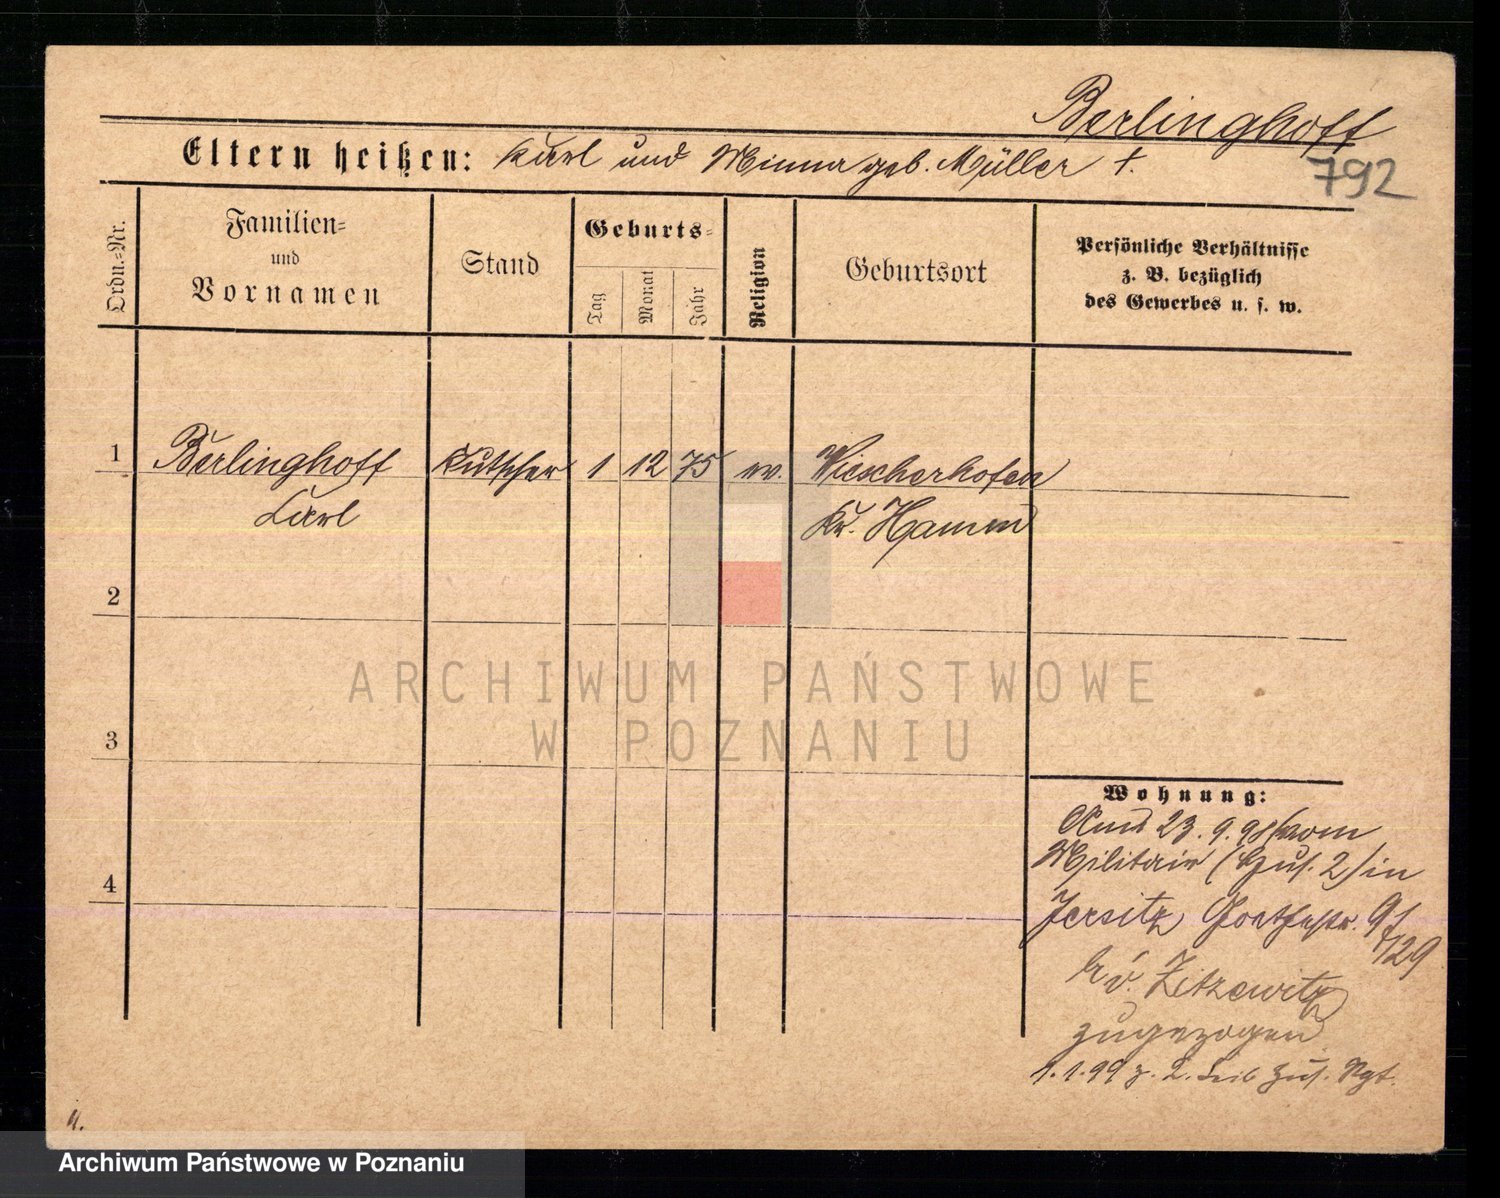 Berlinghoff
792
Eltern heißen: Karl und Minna geb. Müller †.
Ordn.-Nr.
Familien-
und
Vornamen
Stand
Geburts-
Tag
Monat
Jahr
Religion
Geburtsort
Persönliche Verhältnisse
z. B. bezüglich
des Gewerbes u. s. w.
1 Berlinghoff Kutscher 1 12 75 ev. Wiescherhofen
Karl Kr. Hamm
2
ARCHIWUM PAŃSTWOWE
W POZNANIU
3
Wohnung:
Am 23.9.98 vom
Militair (Hus. 2) in
4
Jersitz 91
/129
b/ v. Zitzewitz
zugezogen
1.1.99 z. 2. Leib Hus. Rgt.
Archiwum Państwowe w Poznaniu